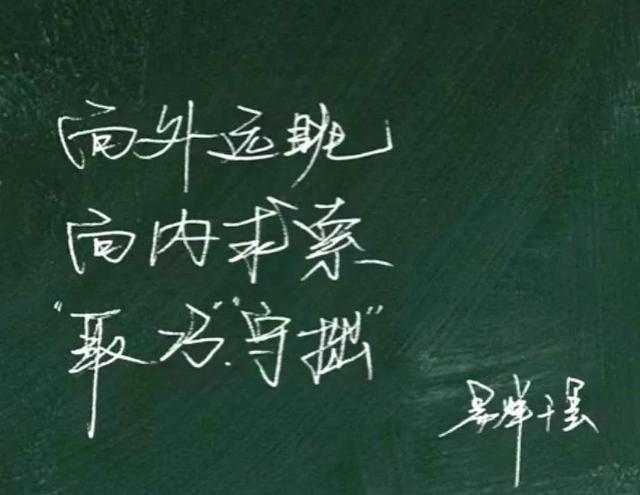 向外远眺
向内求索
“取巧”“守拙”
易烊千玺